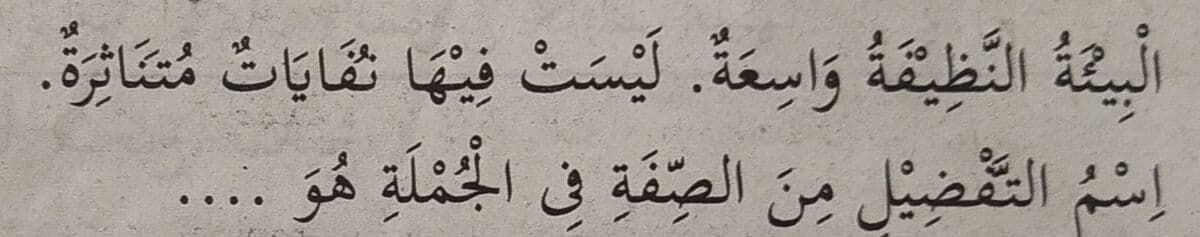 الْبِيْئَةُ النَّظِيْفَةُ وَاسِعَةٌ. لَيْسَتْ فِيْهَا نُفَايَاتٌ مُتَنَاثِرَةٌ.
اِسْمُ التَّفْضِيْلِ مِنَ الصِّفَةِ فِى الْجُمْلَةِ هُوَ ....